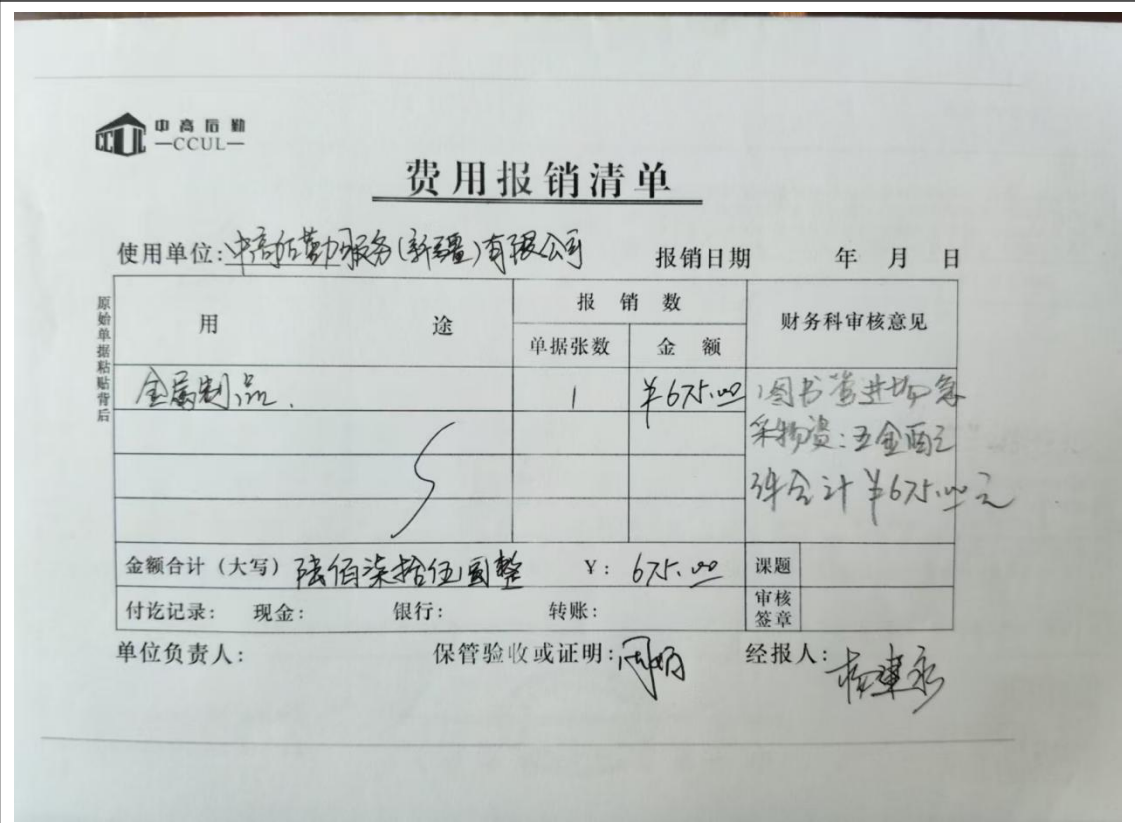 中高后勤
CCUL
—CCUL—
费用报销清单
使用单位:中高后勤服务(新疆)有限公司 报销日期 年 月 日
原始单据粘贴背后
用 途 报销数 财务科审核意见
单据张数 金额
金属制品. 1 ¥675.00 图书
采物资:五金配
件合计¥675.00元
金额合计(大写) 陆佰柒拾伍圆整 ¥: 675.00 课题
付讫记录: 现金: 银行: 转账: 审核签章
单位负责人: 保管验收或证明: 经报人: